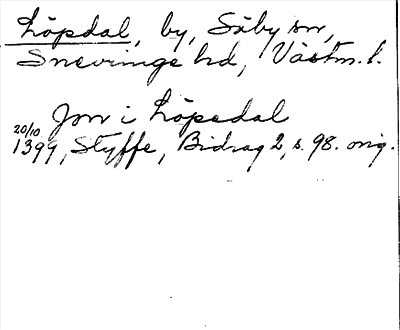 Löpdal, by, Säby sn,
Snevringe hd, Västm. l.
Jon i Löpsdal
20/10
1399, Styffe, Bidrag 2, s. 98. orig.